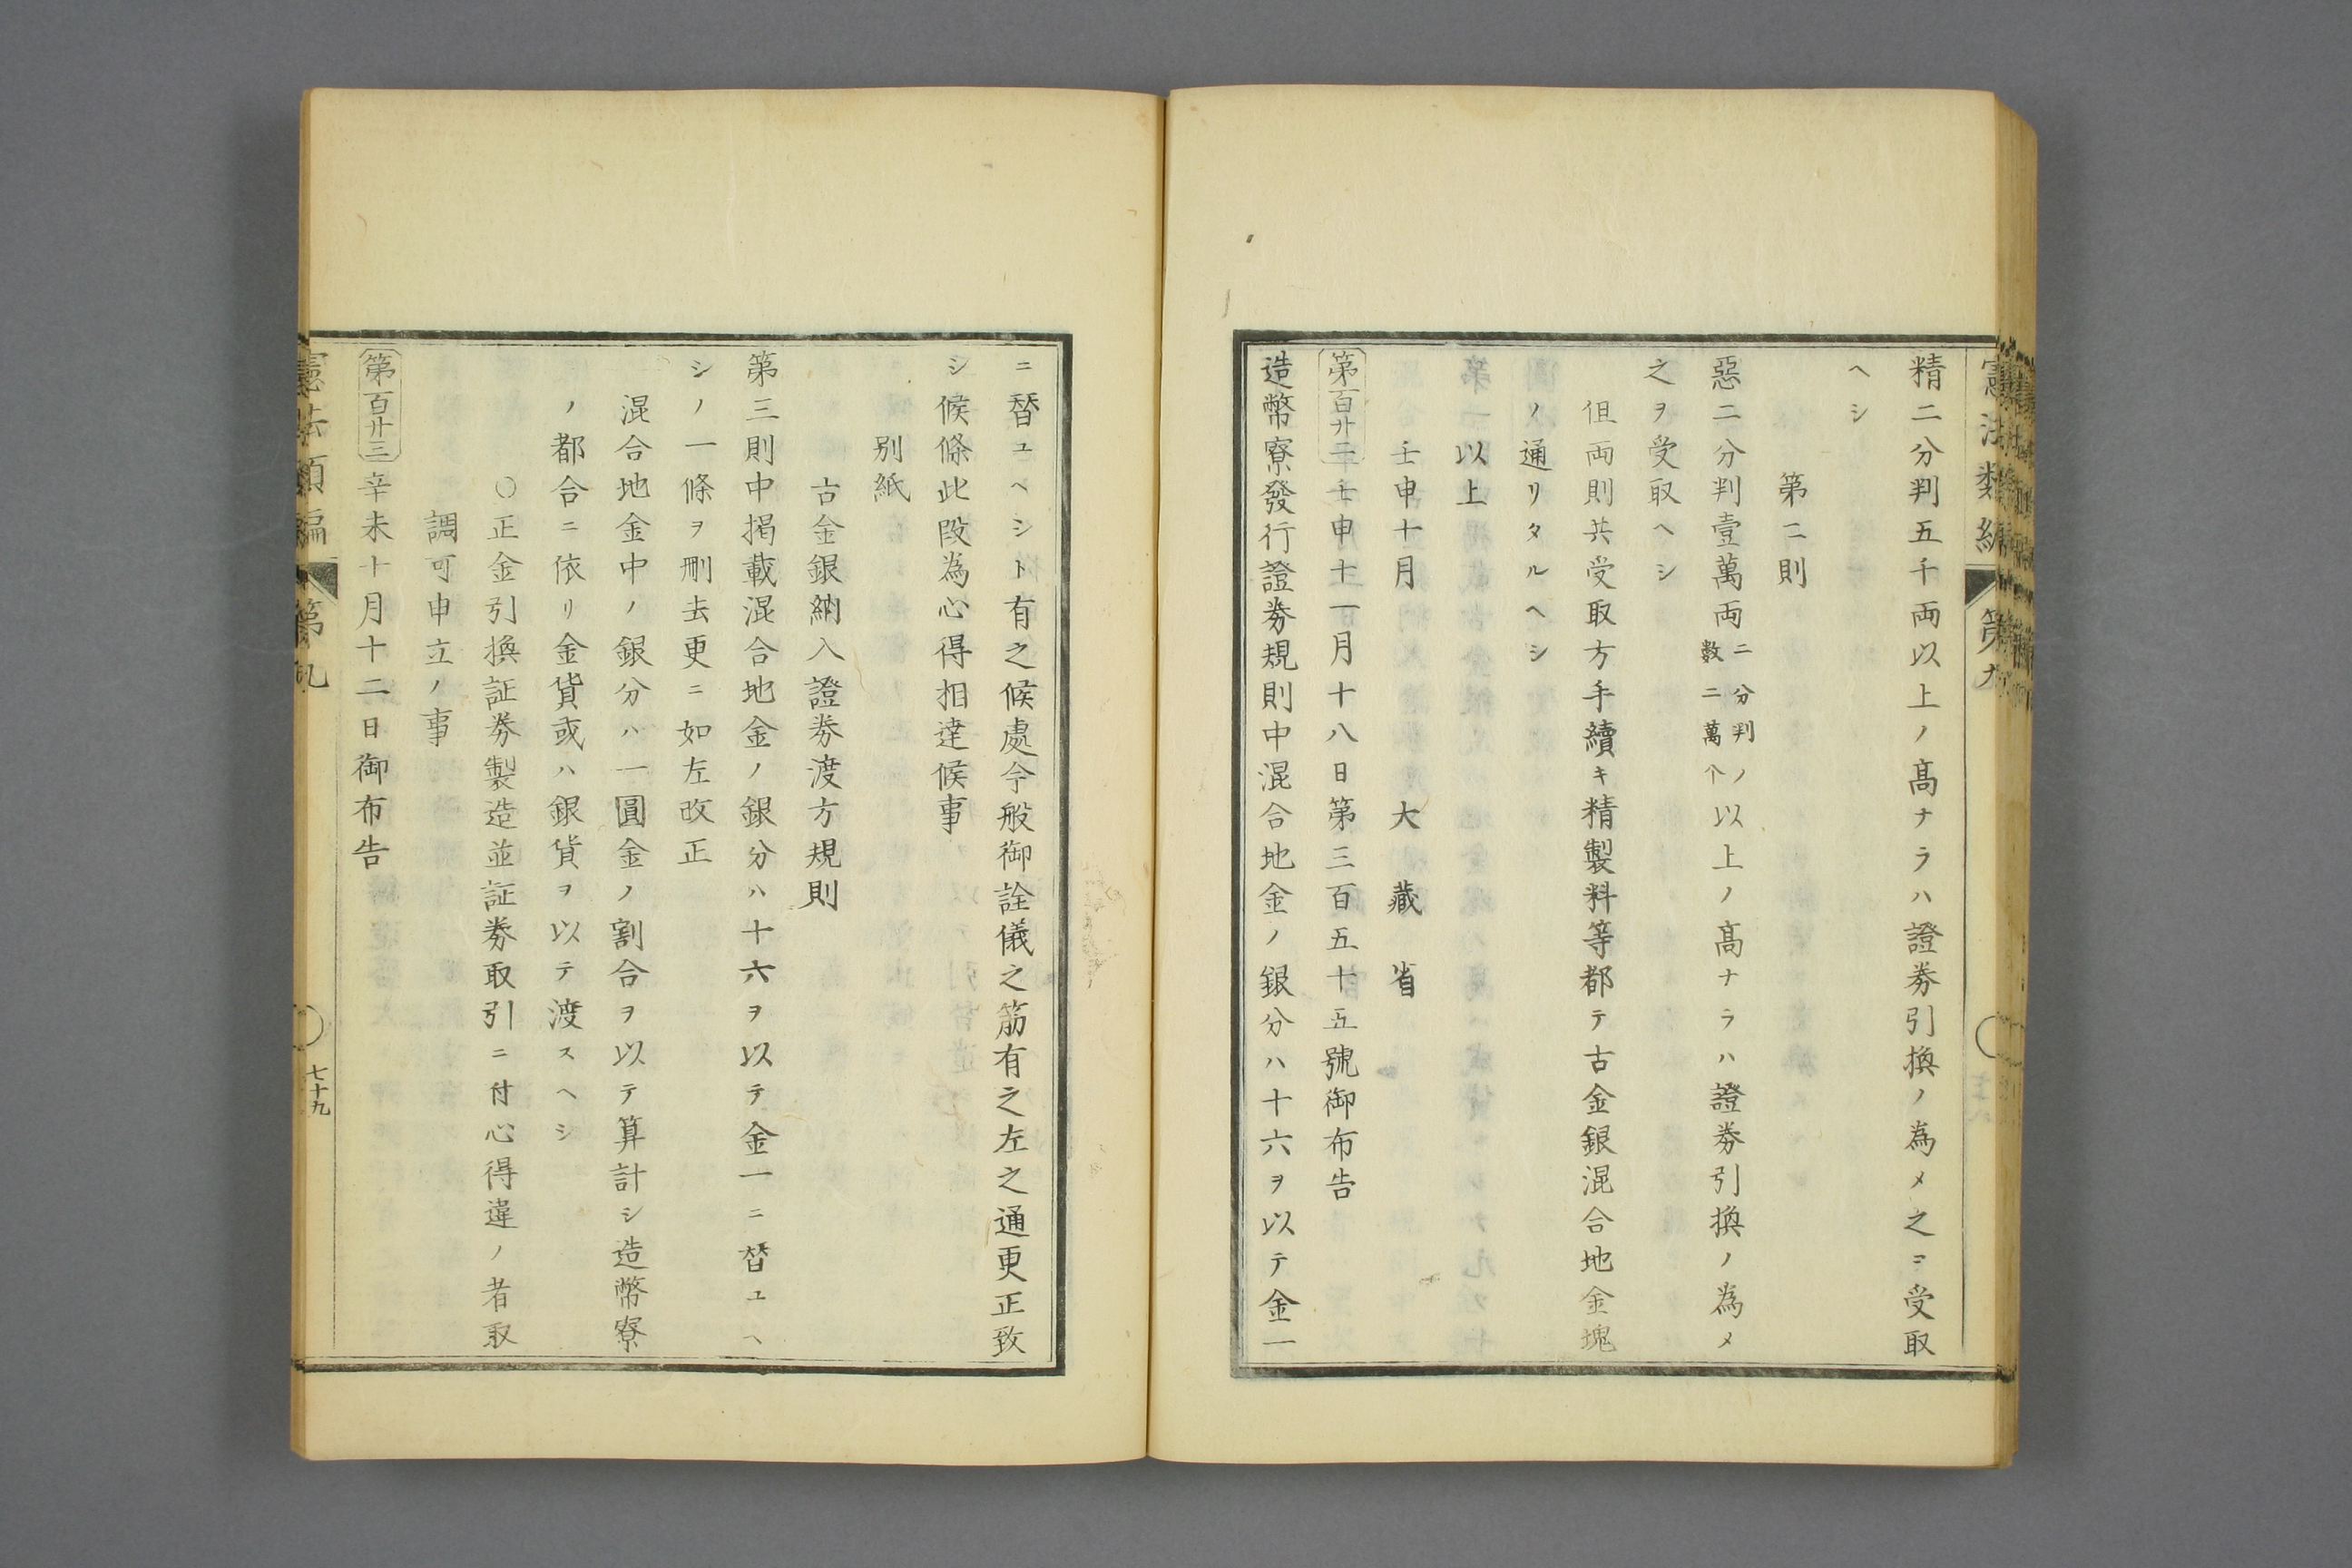 憲法類編 第九
精二分判五千両以上ノ髙ナラハ證券引換ノ為メ之ヲ受取
ヘシ
第二則
惡二分判壹萬両二分判ノ数二萬个以上ノ髙ナラハ證券引換ノ為メ
之ヲ受取ヘシ
但両則共受取方手續キ精製料等都テ古金銀混合地金塊
ノ通リタルヘシ
以上
壬申十月 大藏省
第百廿二壬申十一月十八日第三百五十五號御布告
造幣寮發行證券規則中混合地金ノ銀分ハ十六ヲ以テ金一
ニ替ユヘシト有之候處今般御詮儀之筋有之左之通更正致
シ候條此段為心得相達候事
別紙
古金銀納入證券渡方規則
第三則中掲載混合地金ノ銀分ハ十六ヲ以テ金一ニ替ユヘ
シノ一條ヲ刪去更ニ如左改正
混合地金中ノ銀分ハ一圓金ノ割合ヲ以テ算計シ造幣寮
ノ都合ニ依リ金貨或ハ銀貨ヲ以テ渡スヘシ
〇正金引換証券製造並証券取引ニ付心得違ノ者取
調可申立ノ事
第百廿三辛未十月十二日御布告
憲法類編 第九 七十九